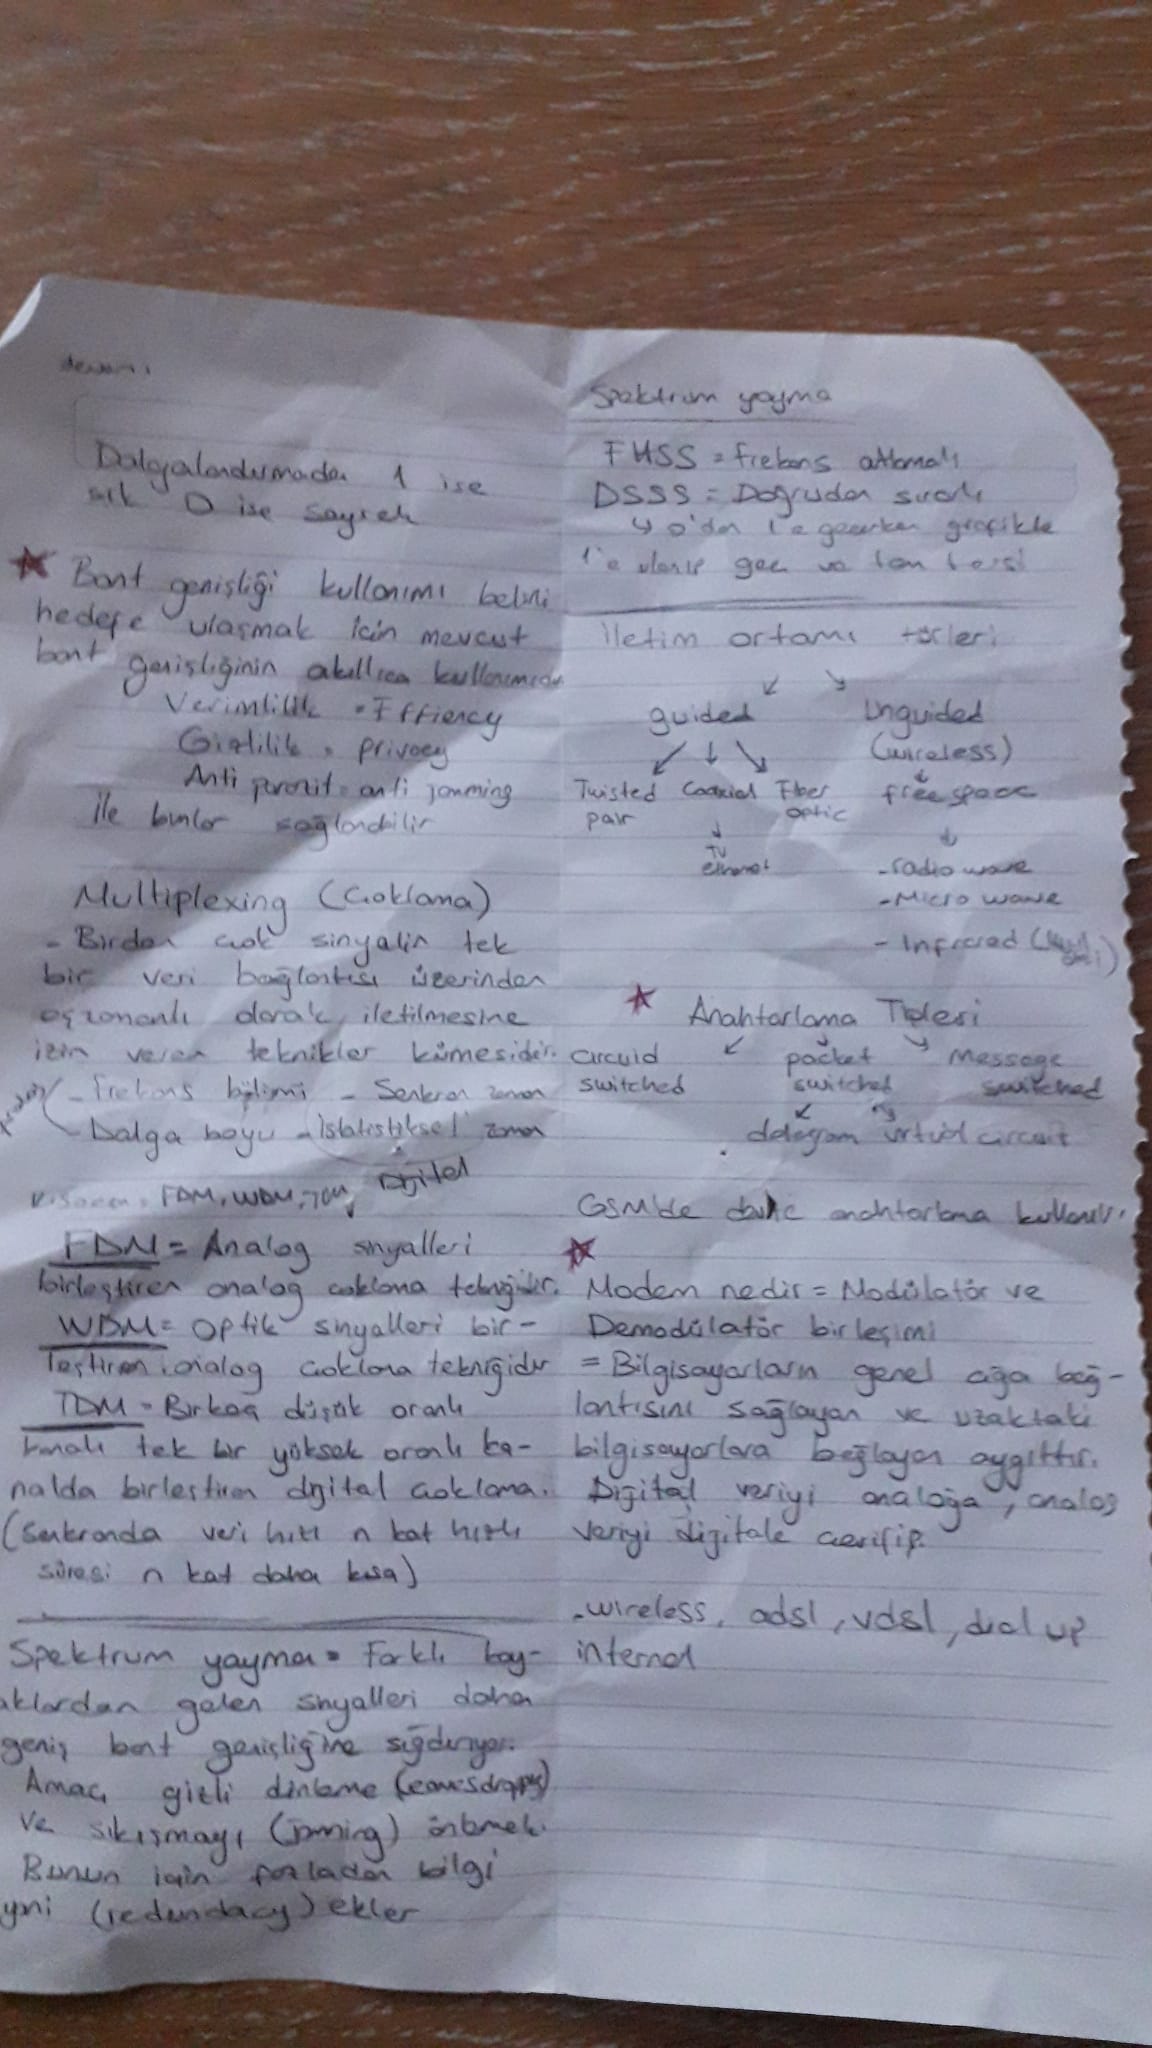 devamı
Dalgalandırmada 1 ise
sık 0 ise seyrek
Bant genişliği kullanımı belirli
hedefe ulaşmak için mevcut
bant genişliğinin akıllıca kullanımıdır
Verimlilik = Effiency
Gizlilik = privacy
Anti parazit = anti jamming
ile bunlar sağlanabilir
Multiplexing (Çoklama)
- Birden çok sinyalin tek
bir veri bağlantısı üzerinden
eşzamanlı olarak iletilmesine
izin veren teknikler kümesidir.
- Frekans bölümü - Senkron zaman
- Dalga boyu - İstatistiksel zaman
Dijital
FDM, WDM, TDM
FDM = Analog sinyalleri
birleştiren analog çoklama tekniğidir.
WDM = Optik sinyalleri bir-
leştiren analog çoklama tekniğidir
TDM = Birkaç düşük oranlı
kanalı tek bir yüksek oranlı ka-
nalda birleştiren dijital çoklama.
(Senkronda veri hızı n kat hızlı
süresi n kat daha kısa)
Spektrum yayma = Farklı kay-
aklardan gelen sinyalleri daha
geniş bant genişliğine sığdırıyor.
Amaç gizli dinleme (eavesdropping)
ve sıkışmayı (jamming) önlemek.
Bunun için fazladan bilgi
yani (redundacy) ekler
Spektrum yayma
FHSS = frekans atlamalı
DSSS = Doğrudan sıralı
↳ 0'dan 1'e geçerken grafikte
1'e geç ve tam tersi
İletim ortamı türleri
guided Unguided
(wireless)
Twisted Coaxial Fiber free space
pair optic
TV
ethernet
- radio wave
- Micro wave
- Infrared
Anahtarlama Tipleri
Circuid packet Message
switched switched switched
datagram virtual circuit
GSM'de anahtarlama kullanılır.
Modem nedir = Modülatör ve
Demodülatör birleşimi
= Bilgisayarların genel ağa bağ-
lantısını sağlayan ve uzaktaki
bilgisayarlara bağlayan aygıttır.
Dijital veriyi analoğa, analog
veriyi dijitale çevirip.
- wireless, adsl, vdsl, dial up
internet